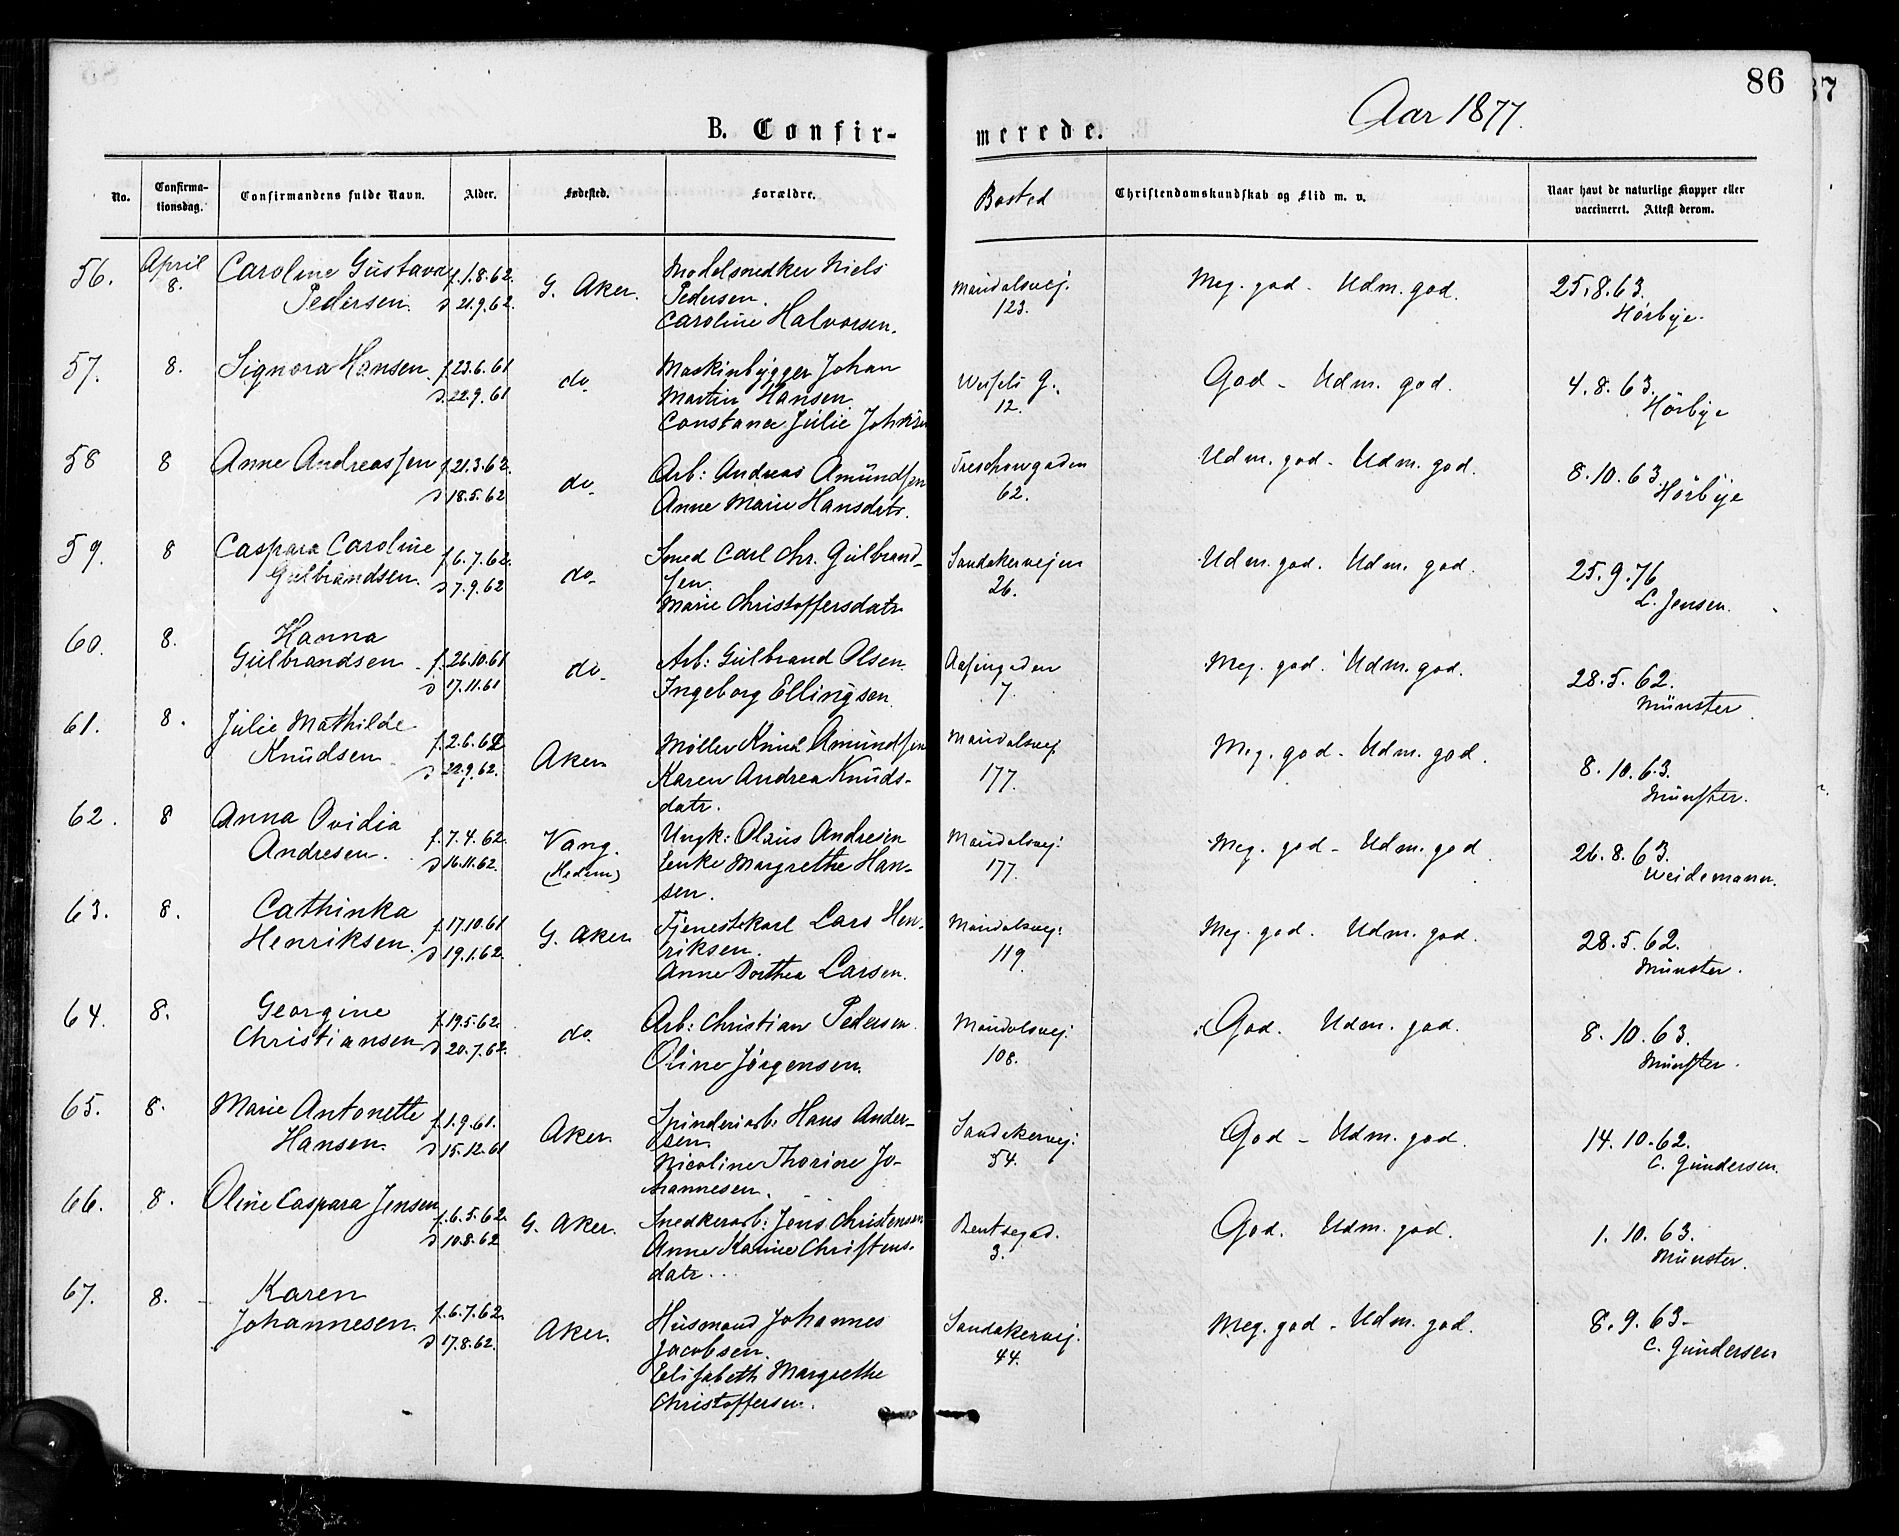 86
87
Aar 1877.
B. Confir-
merede.
No.
Confirma-
tionsdag.
Confirmandens fulde Navn.
Alder.
Fødested.
Forældre.
Bosted
Christendomskundskab og Flid m. v.
Naar havt de naturlige Kopper eller
vaccineret. Attest derom.
56.
April
8.
Caroline Gustava
Pedersen.
f. 1.8.62.
d 21.9.62.
G. Aker.
Modelsnedker Niels
Pedersen.
Caroline Halvorsen.
Maridalsvej.
123.
Meg. god - Udm. god.
25.8.63.
Hörbye.
57.
8.
Signora Hansen.
f. 23.6.61
d. 22.9.61
do
Maskinbygger Johan
Martin Hansen
Constance Julie Johnsen
Wessels G.
12.
God - Udm. god.
4.8.63.
Hörbye
58
8
Anne Andreassen
f. 21.3.62.
d 18.5.62
do
Arb: Andreas Amundsen
Anne Marie Hansdatr.
Treschowgaden
62.
Udm. god - Udm. god.
8.10.63.
Hörbye
59.
8
Caspara Caroline
Gulbrandsen.
f 6.7.62.
d 7.9.62
do
Smed Carl Chr. Gulbrand-
sen.
Marie Christoffersdatr
Sandakervejen
26.
Udm. god. Udm. god.
25.9.76
L. Jensen.
60.
8.
Hanna
Gulbrandsen
f. 26.10.61
d 17.11.61
do
Arb: Gulbrand Olsen
Ingeborg Ellingsen
7.
Meg. god. Udm. god.
28.5.62.
Münster
61.
8.
Julie Mathilde
Knudsen
f. 2.6.62
d 22.9.62.
Aker
Møller Knud Amundsen
Karen Andrea Knuds-
datr.
Maridalsvej
177.
Meg. god - Udm. god.
8.10.63.
Münster.
62.
8
Anna Ovidia
Andresen.
f. 7.4.62.
d 16.11.62.
Vang.
(Hedem)
Ungk: Olaus Andresen
Enke Margrethe Han-
sen.
Maridalsvej:
177.
Meg. god - Udm. god
26.8.63.
Weidemann.
63.
8.
Cathinka
Henriksen.
f. 17.10.61
d 19.1.62.
G. Aker
Tjenestekarl Lars Hen-
riksen.
Anne Dorthea Larsen.
Maridalsvej:
119.
Meg. god. Udm. god.
28.5.62.
Münster.
64.
8.
Georgine
Christiansen
f. 19.5.62.
d 20.7.62.
do
Arb: Christian Pedersen
Oline Jörgensen.
Maridalsvej:
108.
God. Udm. god.
8.10.63.
Münster.
65.
8.
Marie Antonette
Hansen.
f. 1.9.61.
d 15.12.61
Aker.
Spinderiarb: Hans Ander-
sen.
Nicoline Thorine Jo-
hannesen.
Sandakervej:
54.
God - Udm. god.
14.10.62.
C. Gundersen.
66.
8.
Oline Caspara Jensen
f. 6.5.62.
d 10.8.62
G. Aker.
Snedkerarb: Jens Christensen
Anne Karine Christens-
datr.
Bentsegad.
3.
God. Udm. god.
1.10.63.
Münster.
67.
8.
Karen
Johannesen.
f. 6.7.62.
d 17.8.62.
Aker.
Husmand Johannes
Jacobsen.
Elisabeth Margrethe
Christoffersen.
Sandakervej.
44.
Meg. god - Udm. god.
8.9.63-
C. Gundersen